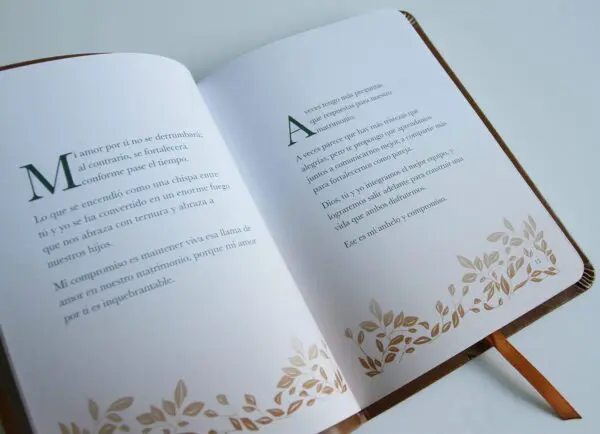 Mi amor por ti no se derrumbará;
al contrario, se fortalecerá
conforme pase el tiempo.
Lo que se encendió como una chispa entre
tú y yo se ha convertido en un enorme fuego
que nos abraza con ternura y abraza a
nuestros hijos.
Mi compromiso es mantener viva esa llama de
amor en nuestro matrimonio, porque mi amor
por ti es inquebrantable.
A veces tengo más preguntas
que respuestas para nuestro
matrimonio.
A veces parece que hay más tristezas que
alegrías, pero te propongo que aprendamos
juntos a comunicarnos mejor, a compartir más
para fortalecernos como pareja.
Dios, tú y yo integramos el mejor equipo, y
lograremos salir adelante para construir una
vida que ambos disfrutemos.
Ese es mi anhelo y compromiso.
15